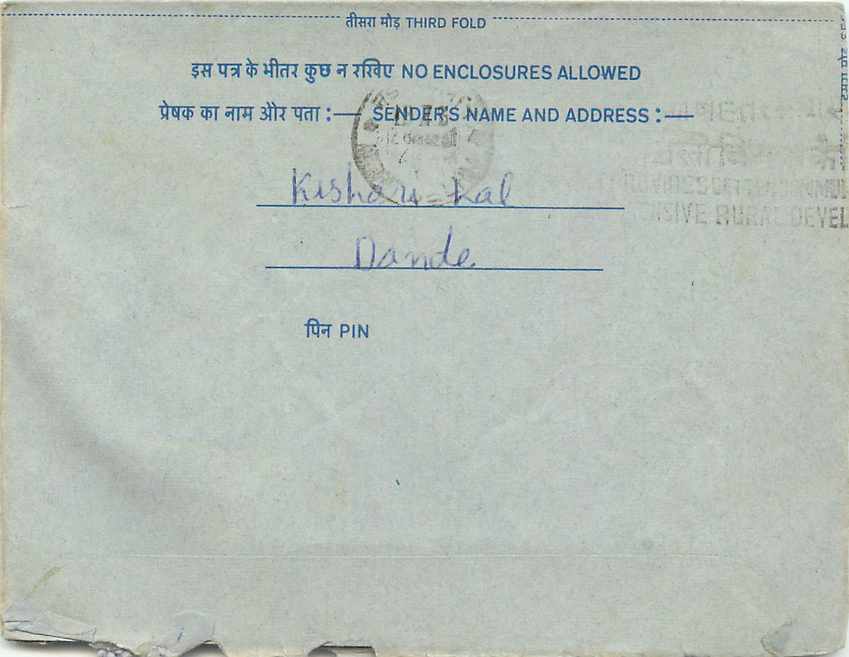 तीसरा मोड़ THIRD FOLD
इस पत्र के भीतर कुछ न रखिए NO ENCLOSURES ALLOWED
प्रेषक का नाम और पता :— SENDER'S NAME AND ADDRESS :—
Kishori Lal
Dande
पिन PIN
RURAL DEVEL